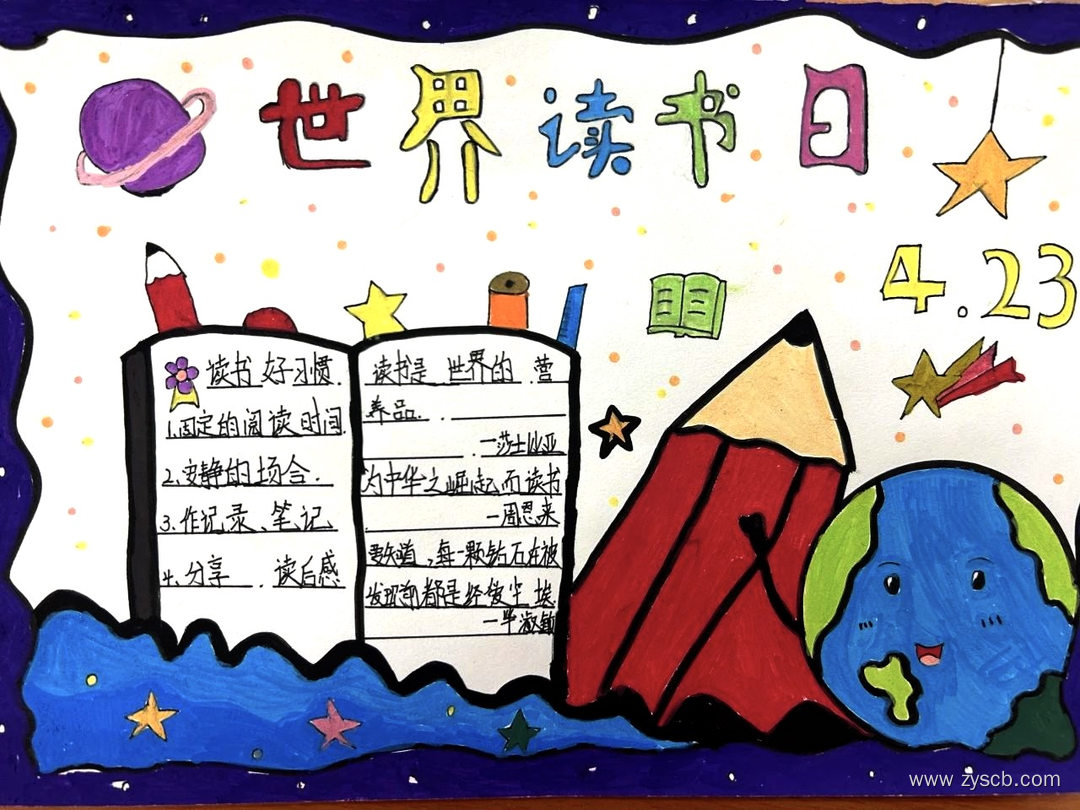 世界读书日
4.23
读书好习惯.
1.固定的阅读时间
2.安静的场合.
3.作记录、笔记
4.分享.读后感
读书是世界的营
养品.
—莎士比亚
为中华之崛起而读书
—周恩来
要知道,每一颗钻石在被
发现前都是经受尘埃
—毕淑敏
www.zyscb.com